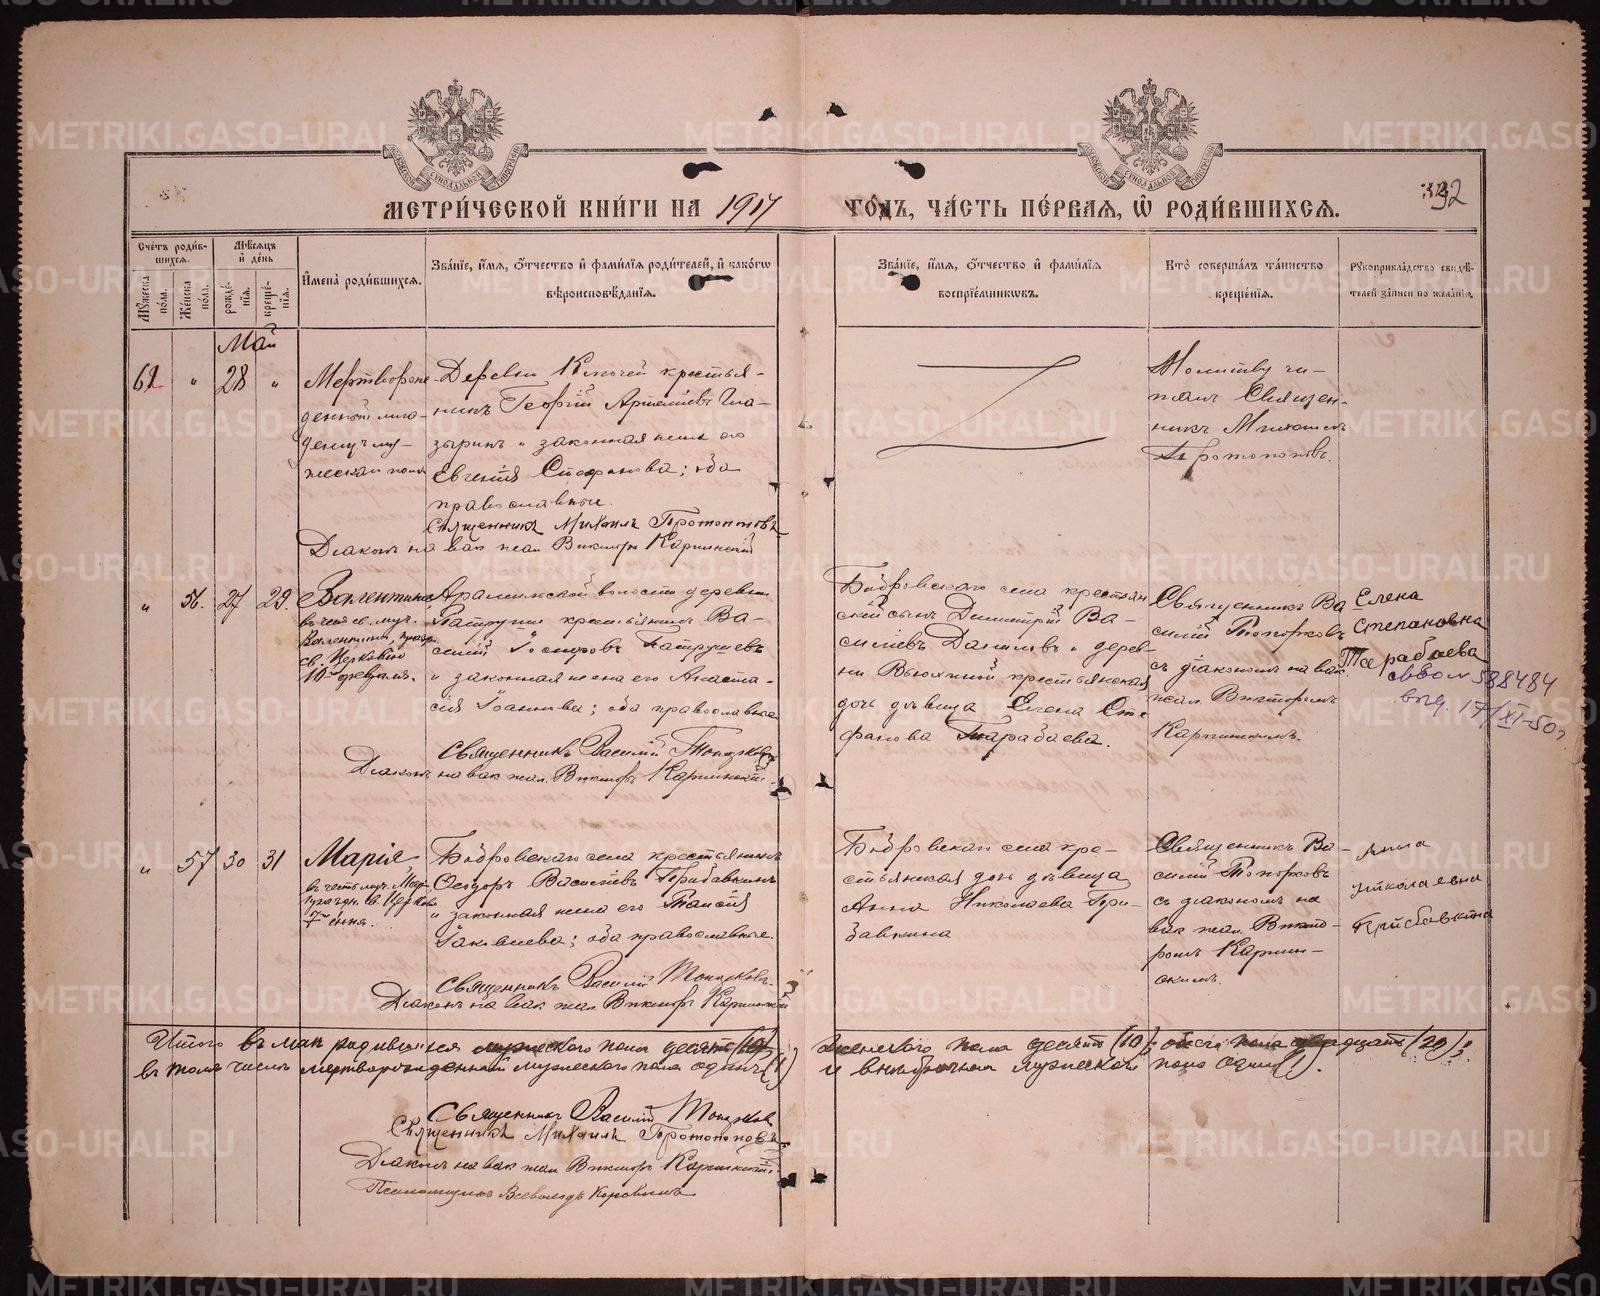 МЕТРИ́ЧЕСКОЙ КНИ́ГИ НА 1917 ГО́ДЪ, ЧА́СТЬ ПЕ́РВАЯ, Ѡ҆ РОДИ́ВШИХСЯ.
32
Сче́тъ роди́вшихся.
Мѣ́сяцъ и҆ де́нь
Мꙋ́жеска по́ла.
Же́нска по́ла.
рожде́нїя.
креще́нїя.
И҆мена̀ роди́вшихся.
Зва́нїе, и҆́мя, ѻ҆́тчество и҆ фами́лїя роди́телей, и҆ како́гѡ вѣроисповѣ́данїя.
Зва́нїе, и҆́мя, ѻ҆́тчество и҆ фами́лїя воспрїе́мникѡвъ.
Кто̀ соверша́лъ та́инство креще́нїя.
Рꙋкоприкла́дство свидѣ́телей за́писи по жела́нїю.
Май
61 " 28 "
Мертворож-
денный мла-
денецъ му-
жескаго пола
Деревни Ключей крестья-
нинъ Георгій Артеміевъ Гла-
зыринъ и законная жена его
Евгенія Стефанова; оба
православные.
Священникъ Михаилъ Протопоповъ
Діаконъ на вак. псал. Викторъ Карпинскій
Молитву чи-
талъ Священ-
никъ Михаилъ
Протопоповъ.
" 56. 27 29.
Валентина,
въ честь св. муч.
Валентины, празд.
св. Церковію
10го февраля.
Арамильской волости деревни
Патруши крестьянинъ Ва-
силій Іосифовъ Патрушевъ
и законная жена его Анаста-
сія Іоаннова; оба православные
Священникъ Василій Топорковъ
Діаконъ на вак. псал. Викторъ Карпинскій.
Бобровскаго села крестьян
скій сынъ Димитрій Ва-
силіевъ Даниловъ и дерев-
ни Вьюхиной крестьянская
дочь дѣвица Елена Сте
фанова Тарабаева.
Священникъ Ва
силій Топорковъ
съ діакономъ на вак.
псал. Викторомъ
Карпинскимъ.
Елена
Степановна
Тарабаева
588484
выд. 17/XI-50г
" 57 30 31
Марія
въ честь муч. Мар.
празд. св. Церков.
7го іюня.
Бобровскаго села крестьянинъ
Ѳеодоръ Василіевъ Прибавкинъ
и законная жена его Таисія
Іаковлева; оба православные.
Священникъ Василій Топорковъ.
Діаконъ на вак. псал. Викторъ Карпинскій
Бобровскаго села кре-
стьянская дочь дѣвица
Анна Николаева При-
бавкина
Священникъ Ва-
силій Топорковъ
съ діакономъ на
вак. псал. Викто-
ромъ Карпин-
скимъ.
Анна
Николаевна
Прибавкина
Итого въ маѣ родившихся мужескаго пола десять (10) женскаго пола десять (10); обоего пола двадцать (20);
въ томъ числѣ мертворожденный мужескаго пола одинъ (1) и внѣбрачный мужескаго пола одинъ (1).
Священникъ Василій Топорковъ
Священникъ Михаилъ Протопоповъ
Діаконъ на вак. псал. Викторъ Карпинскій.
Псаломщикъ Всеволодъ Коровинъ
METRIKI.GASO-URAL.RU